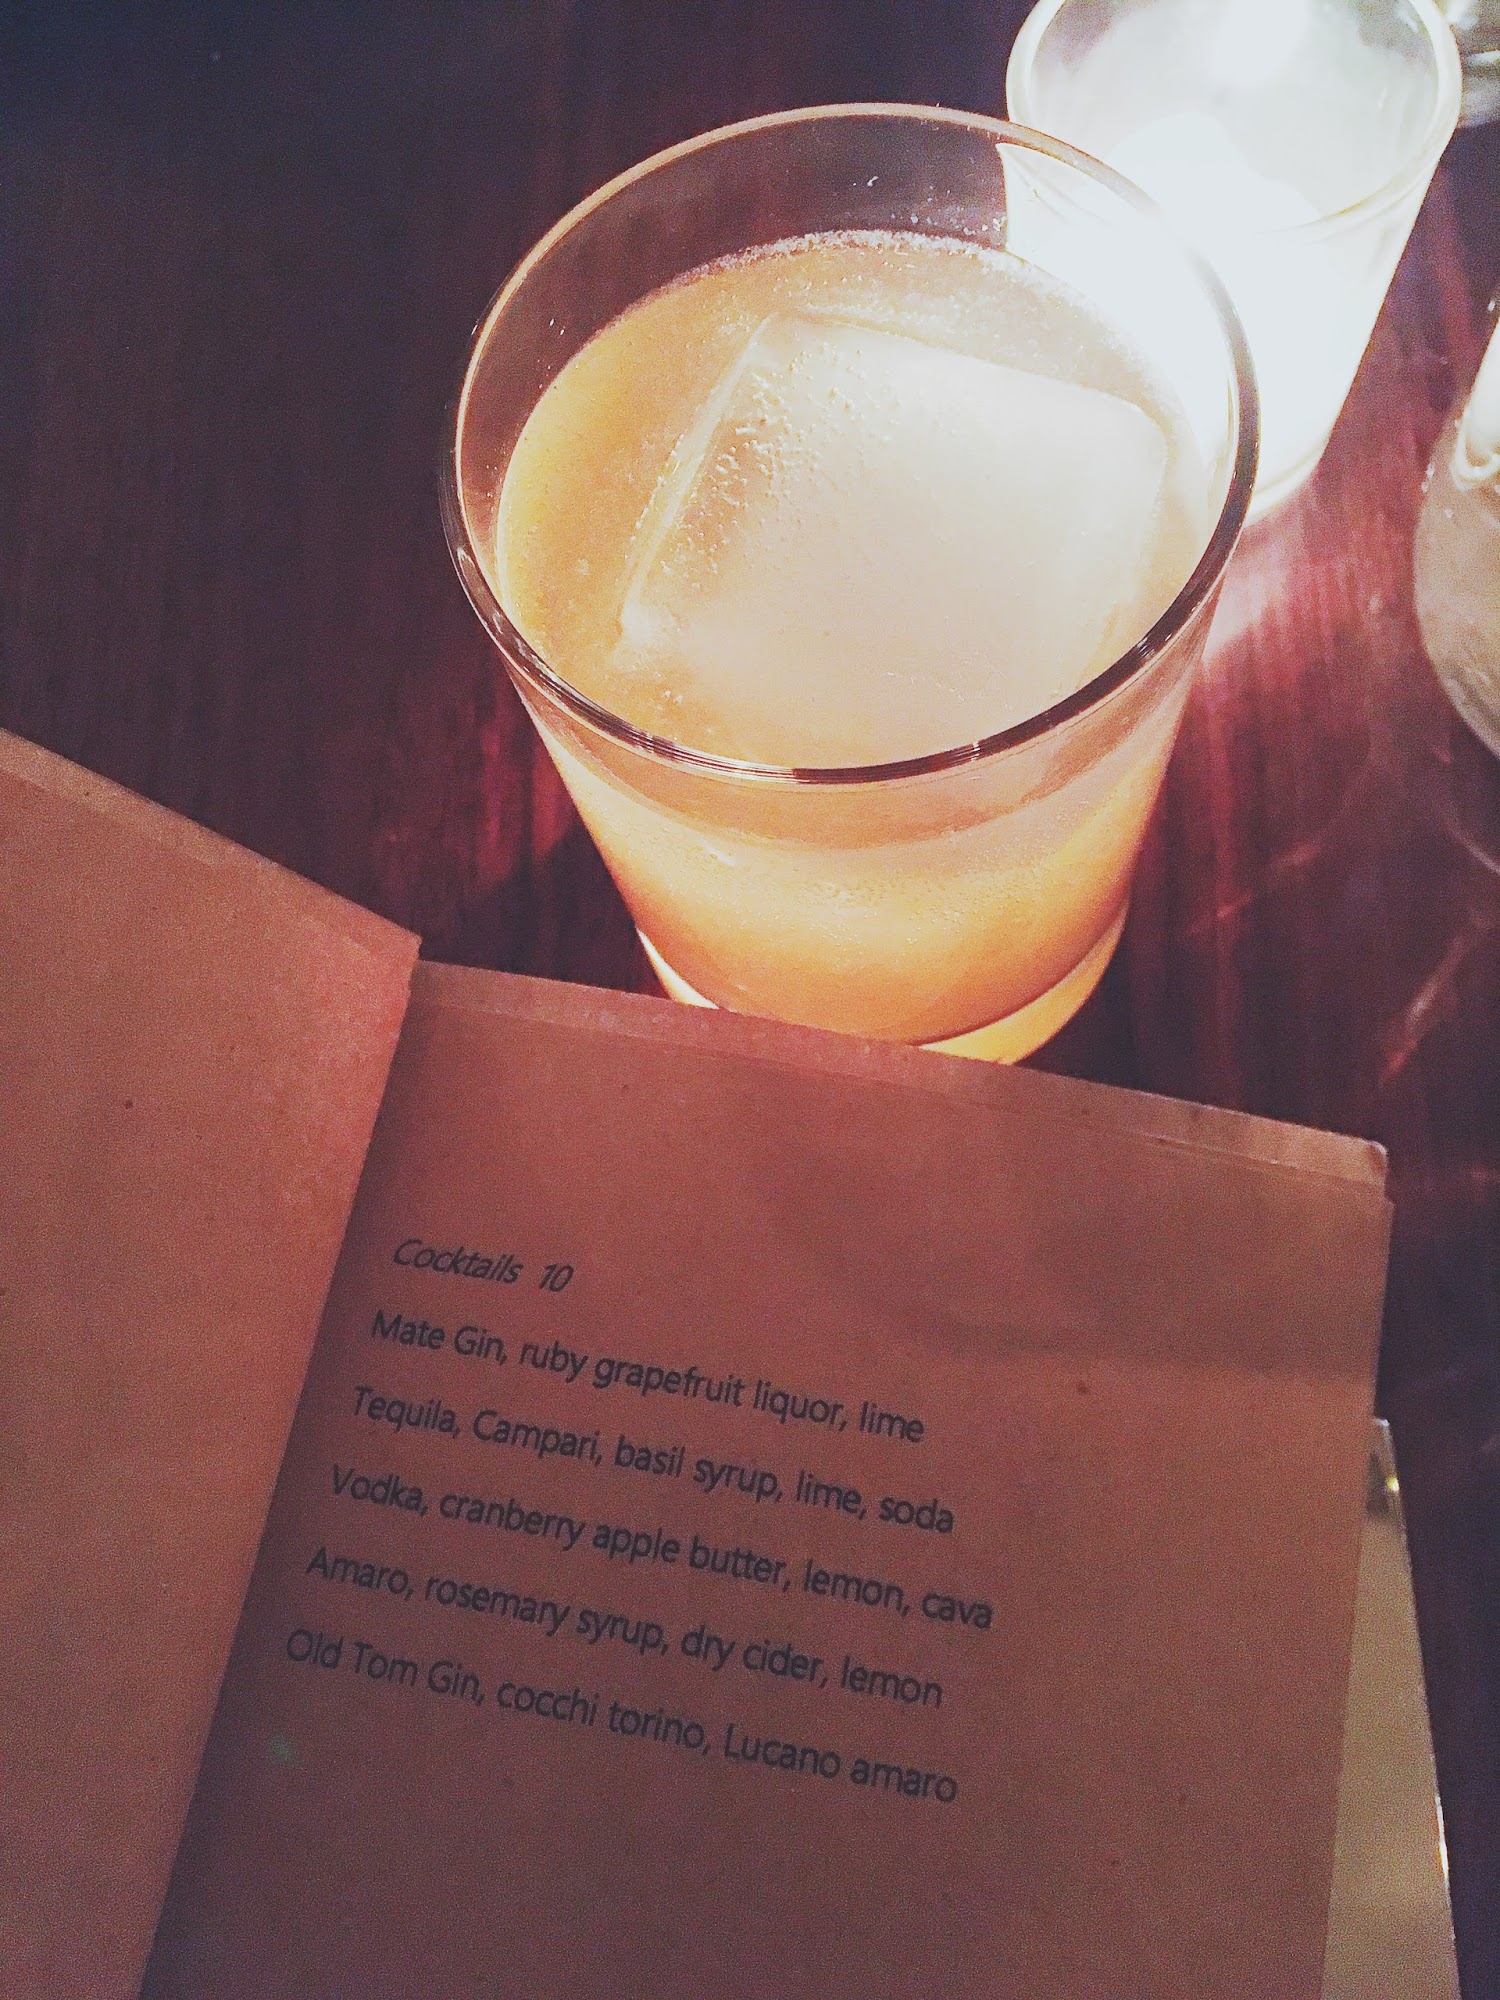 Cocktails 10
Mate Gin, ruby grapefruit liquor, lime
Tequila, Campari, basil syrup, lime, soda
Vodka, cranberry apple butter, lemon, cava
Amaro, rosemary syrup, dry cider, lemon
Old Tom Gin, cocchi torino, Lucano amaro